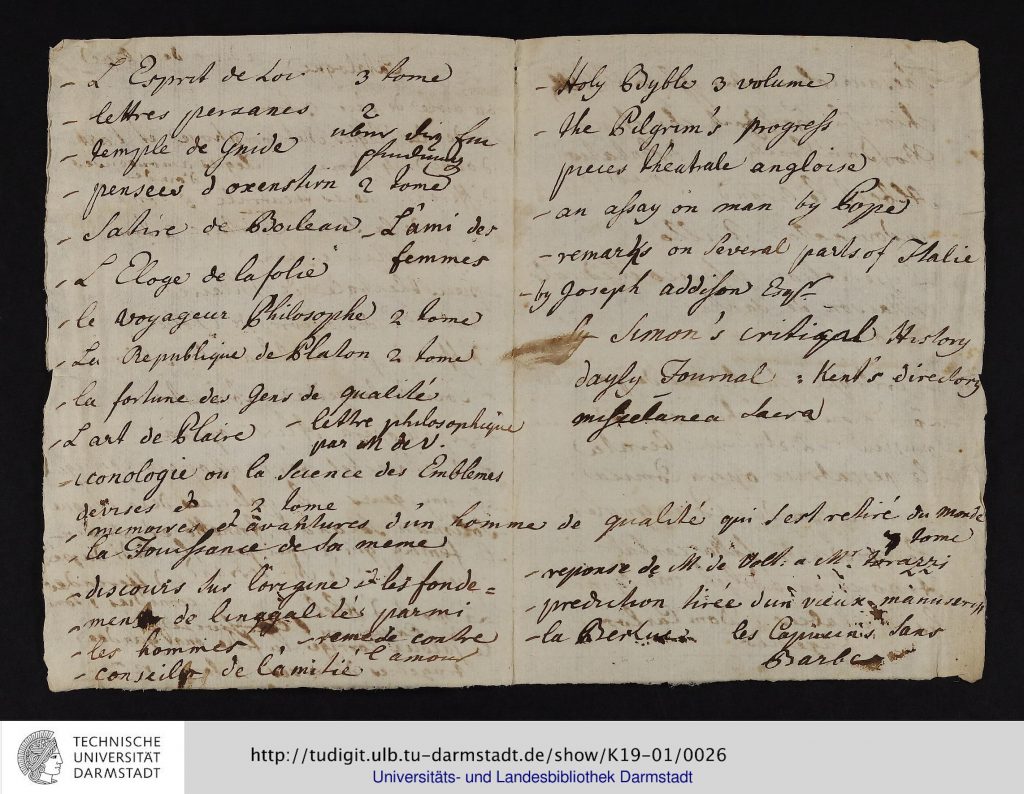 - L Esprit de Loi 3 tome
- lettres persanes 2
- temple de Gnide
- pensees d oxenstirn 2 tome
- Satire de Boileau - L'ami des
femmes
- L Eloge de la folie
- le voyageur Philosophe 2 tome
- La Republique de Platon 2 tome
- la fortune des Gens de qualité
- L'art de Plaire - lettre philosophique
par M de V.
- iconologie ou la Science des Emblemes
devises et 2 tome
- memoires et avantures d'un homme de qualité qui s'est retiré du monde
7 tome
- la Jouissance de soi meme
- discours sus l'origine et les fonde=
- mens de linegalités parmi
- les hommes - remede contre
l'amour
- conseils de l'amitié
- Holy Byble 3 volume
- the Pilgrim's progress
pieces theatrale angloise
- an assay on man by Pope
- remarks on Several parts of Italie
- by Joseph addison Esqr.
Simon's critiqal History
dayly Journal : Kent's directory
miscelanea Sacra
- reponse de M. de Volt. a Mr. Terazzi
- prediction tirée d'un vieux manuscrip
- la Berlue les Capucins Sans
Barbe
TECHNISCHE
UNIVERSITÄT
DARMSTADT
http://tudigit.ulb.tu-darmstadt.de/show/K19-01/0026
Universitäts- und Landesbibliothek Darmstadt